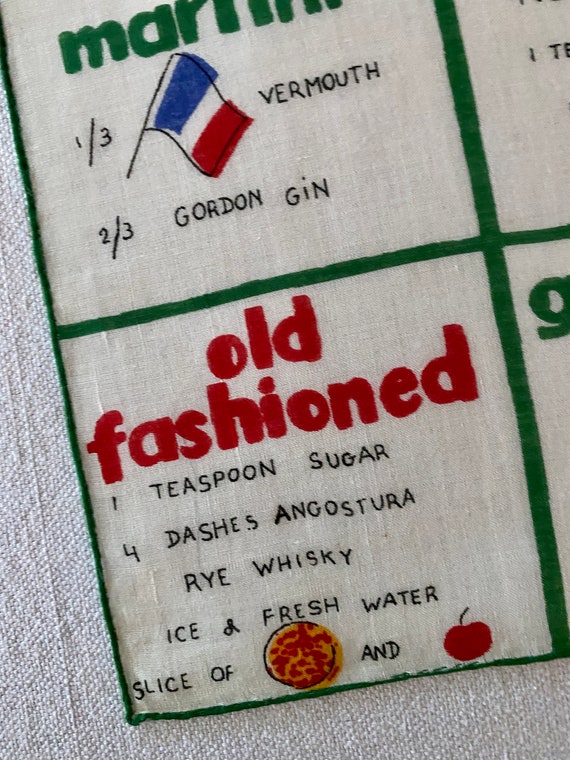 martini
1/3 VERMOUTH
2/3 GORDON GiN
1 TE
old
fashioned
1 TEASPOON SUGAR
4 DASHES ANGOSTURA
RYE WHISKY
ICE & FRESH WATER
SLICE OF AND
g